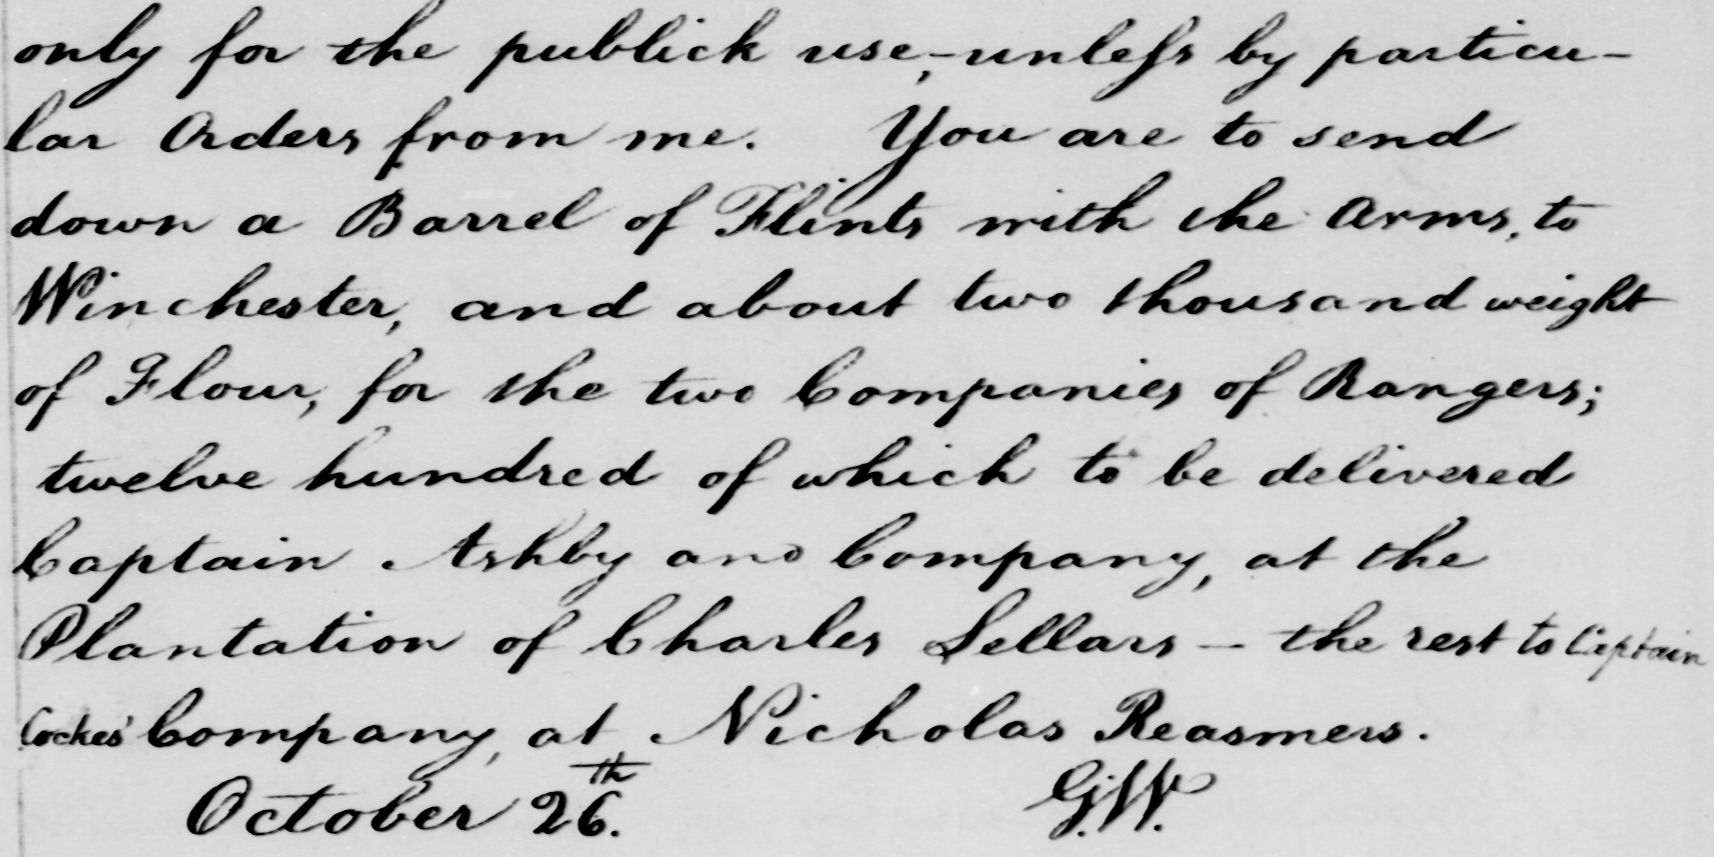 only for the publick use,-unless by particu-
lar Orders from me. You are to send
down a Barrel of Flints with the Arms, to
Winchester, and about two thousand weight
of Flour, for the two Companies of Rangers;
twelve hundred of which to be delivered
Captain Ashby and Company, at the
Plantation of Charles Sellars - the rest to Captain
Cockes' Company, at Nicholas Reasmers.
October 26th. G.W.